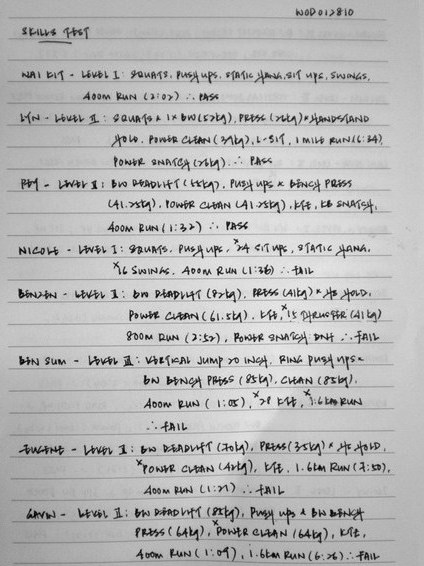 WOD012810
SKILLS TEST
WAI KIT - LEVEL I: SQUATS, PUSH UPS, STATIC HANG, SIT UPS, SWINGS,
400M RUN (2:02) ∴ PASS
LYN - LEVEL II: SQUATS x 1x BW (52kg), PRESS (26kg) x HANDSTAND
HOLD, POWER CLEAN (39kg), L-SIT, 1 MILE RUN (6:34)
POWER SNATCH (26kg) ∴ PASS
PEY - LEVEL II: BW DEADLIFT (55kg), PUSH UPS x BENCH PRESS
(41.25kg), POWER CLEAN (41.25kg), KTE, KB SNATCH,
400M RUN (1:32) ∴ PASS
NICOLE - LEVEL I: SQUATS, PUSH UPS, x24 SIT UPS, STATIC HANG,
x16 SWINGS, 400M RUN (1:36) ∴ FAIL
BENZEN - LEVEL II: BW DEADLIFT (82kg), PRESS (41kg) x HS HOLD,
POWER CLEAN (61.5kg), KTE, x15 THRUSTER (41kg)
800M RUN (2:52), POWER SNATCH DNF ∴ FAIL
BEN SUM - LEVEL III: VERTICAL JUMP 20 INCH, RING PUSH UPS x
BW BENCH PRESS (85kg), CLEAN (85kg),
400M RUN (1:05), x28 KTE, x1.6KM RUN
∴ FAIL
EUGENE - LEVEL II: BW DEADLIFT (70kg), PRESS (35kg) x HS HOLD,
xPOWER CLEAN (42kg), KTE, 1.6KM RUN (7:50),
400M RUN (1:27) ∴ FAIL
GAVIN - LEVEL II: BW DEADLIFT (85kg), PUSH UPS x BW BENCH
PRESS (64kg), xPOWER CLEAN (64kg), KTE,
400M RUN (1:09), 1.6KM RUN (6:26) ∴ FAIL